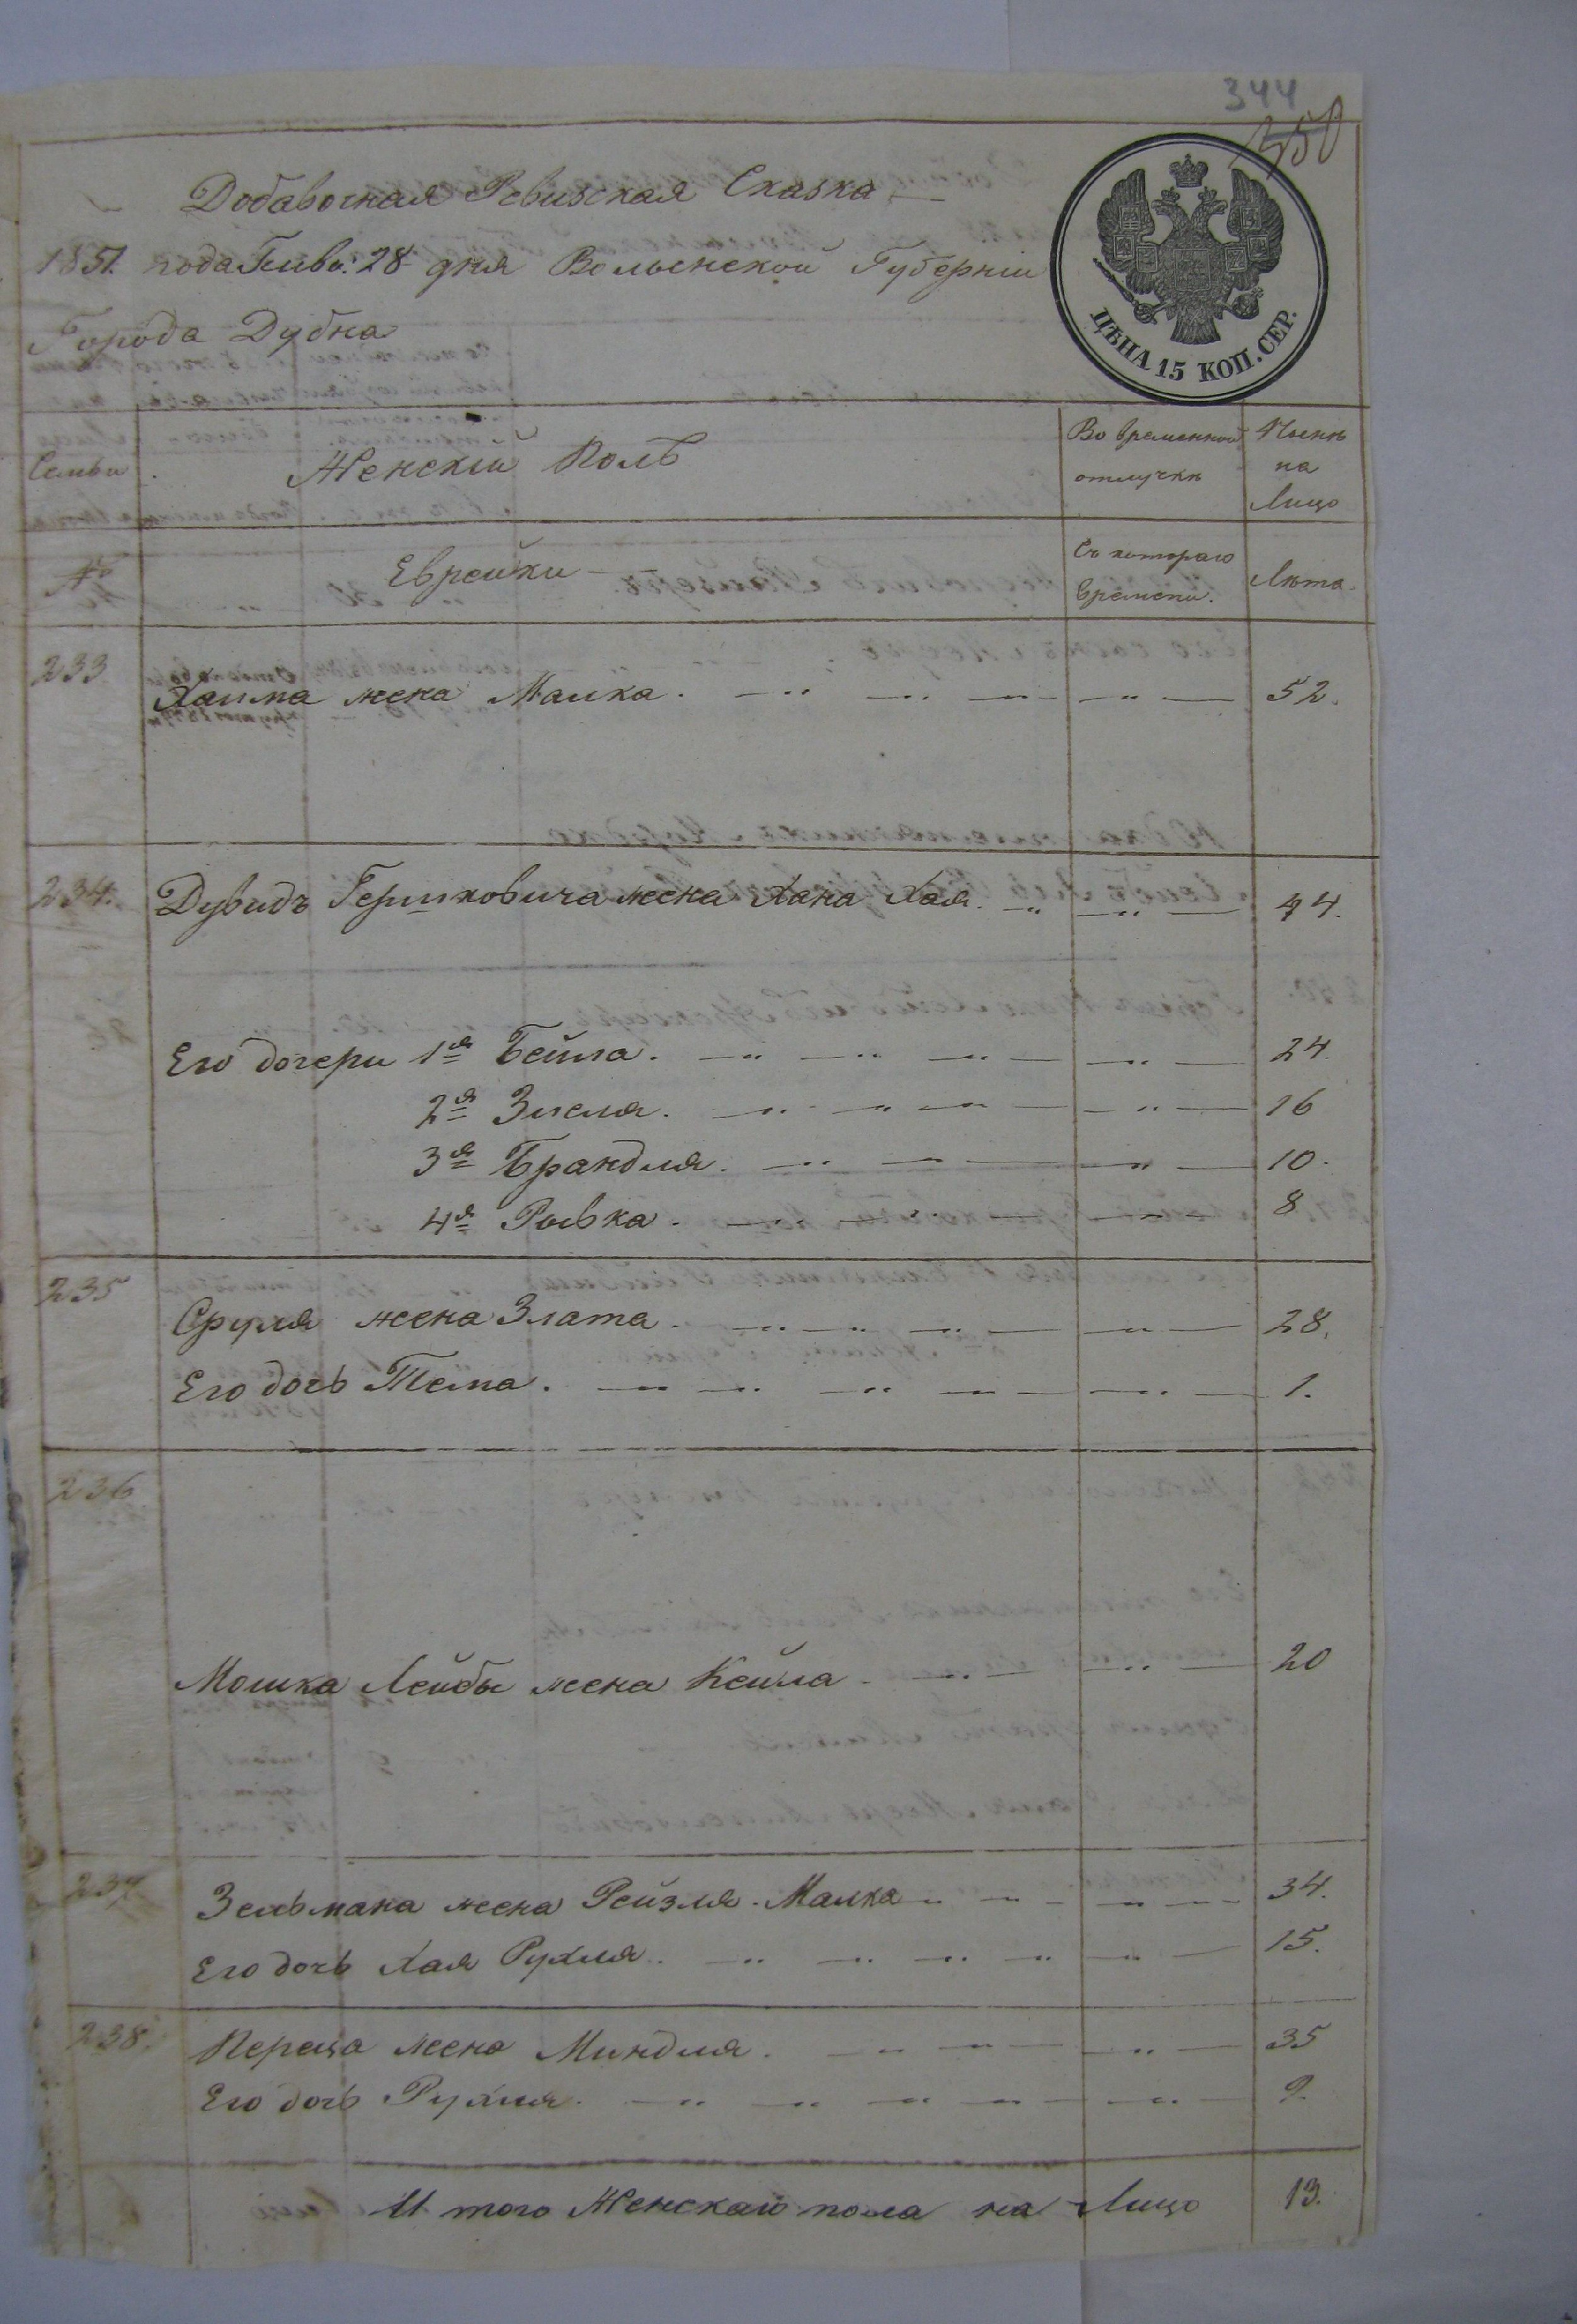 344
350
Добавочная Ревизская Сказка
1851 года Генва: 28 дня Волынской Губерніи
Города Дубна
ЦѢНА 15 КОП. СЕР.
Семьи Женскій Полъ Во временной отлучкѣ Нынѣ на Лицо
№ Еврейки Съ котораго времени. Лѣта
233 Хаима жена Малка. 52.
234. Дувидъ Гершковича жена Хана Хая. 44.
Его дочери 1я Бейла. 24.
2я Зисля. 16
3я Брандля. 10.
4я Ривка. 8
235 Сруля жена Злата. 28.
Его дочь Тема. 1.
236 Мошка Лейбы жена Кейла. 20
237 Зельмана жена Рейзля Малка 34.
Его дочь Хая Рухля. 15.
238. Переца жена Миндля. 35
Его дочь Рухля. 9.
И того Женскаго пола на Лицо 13.